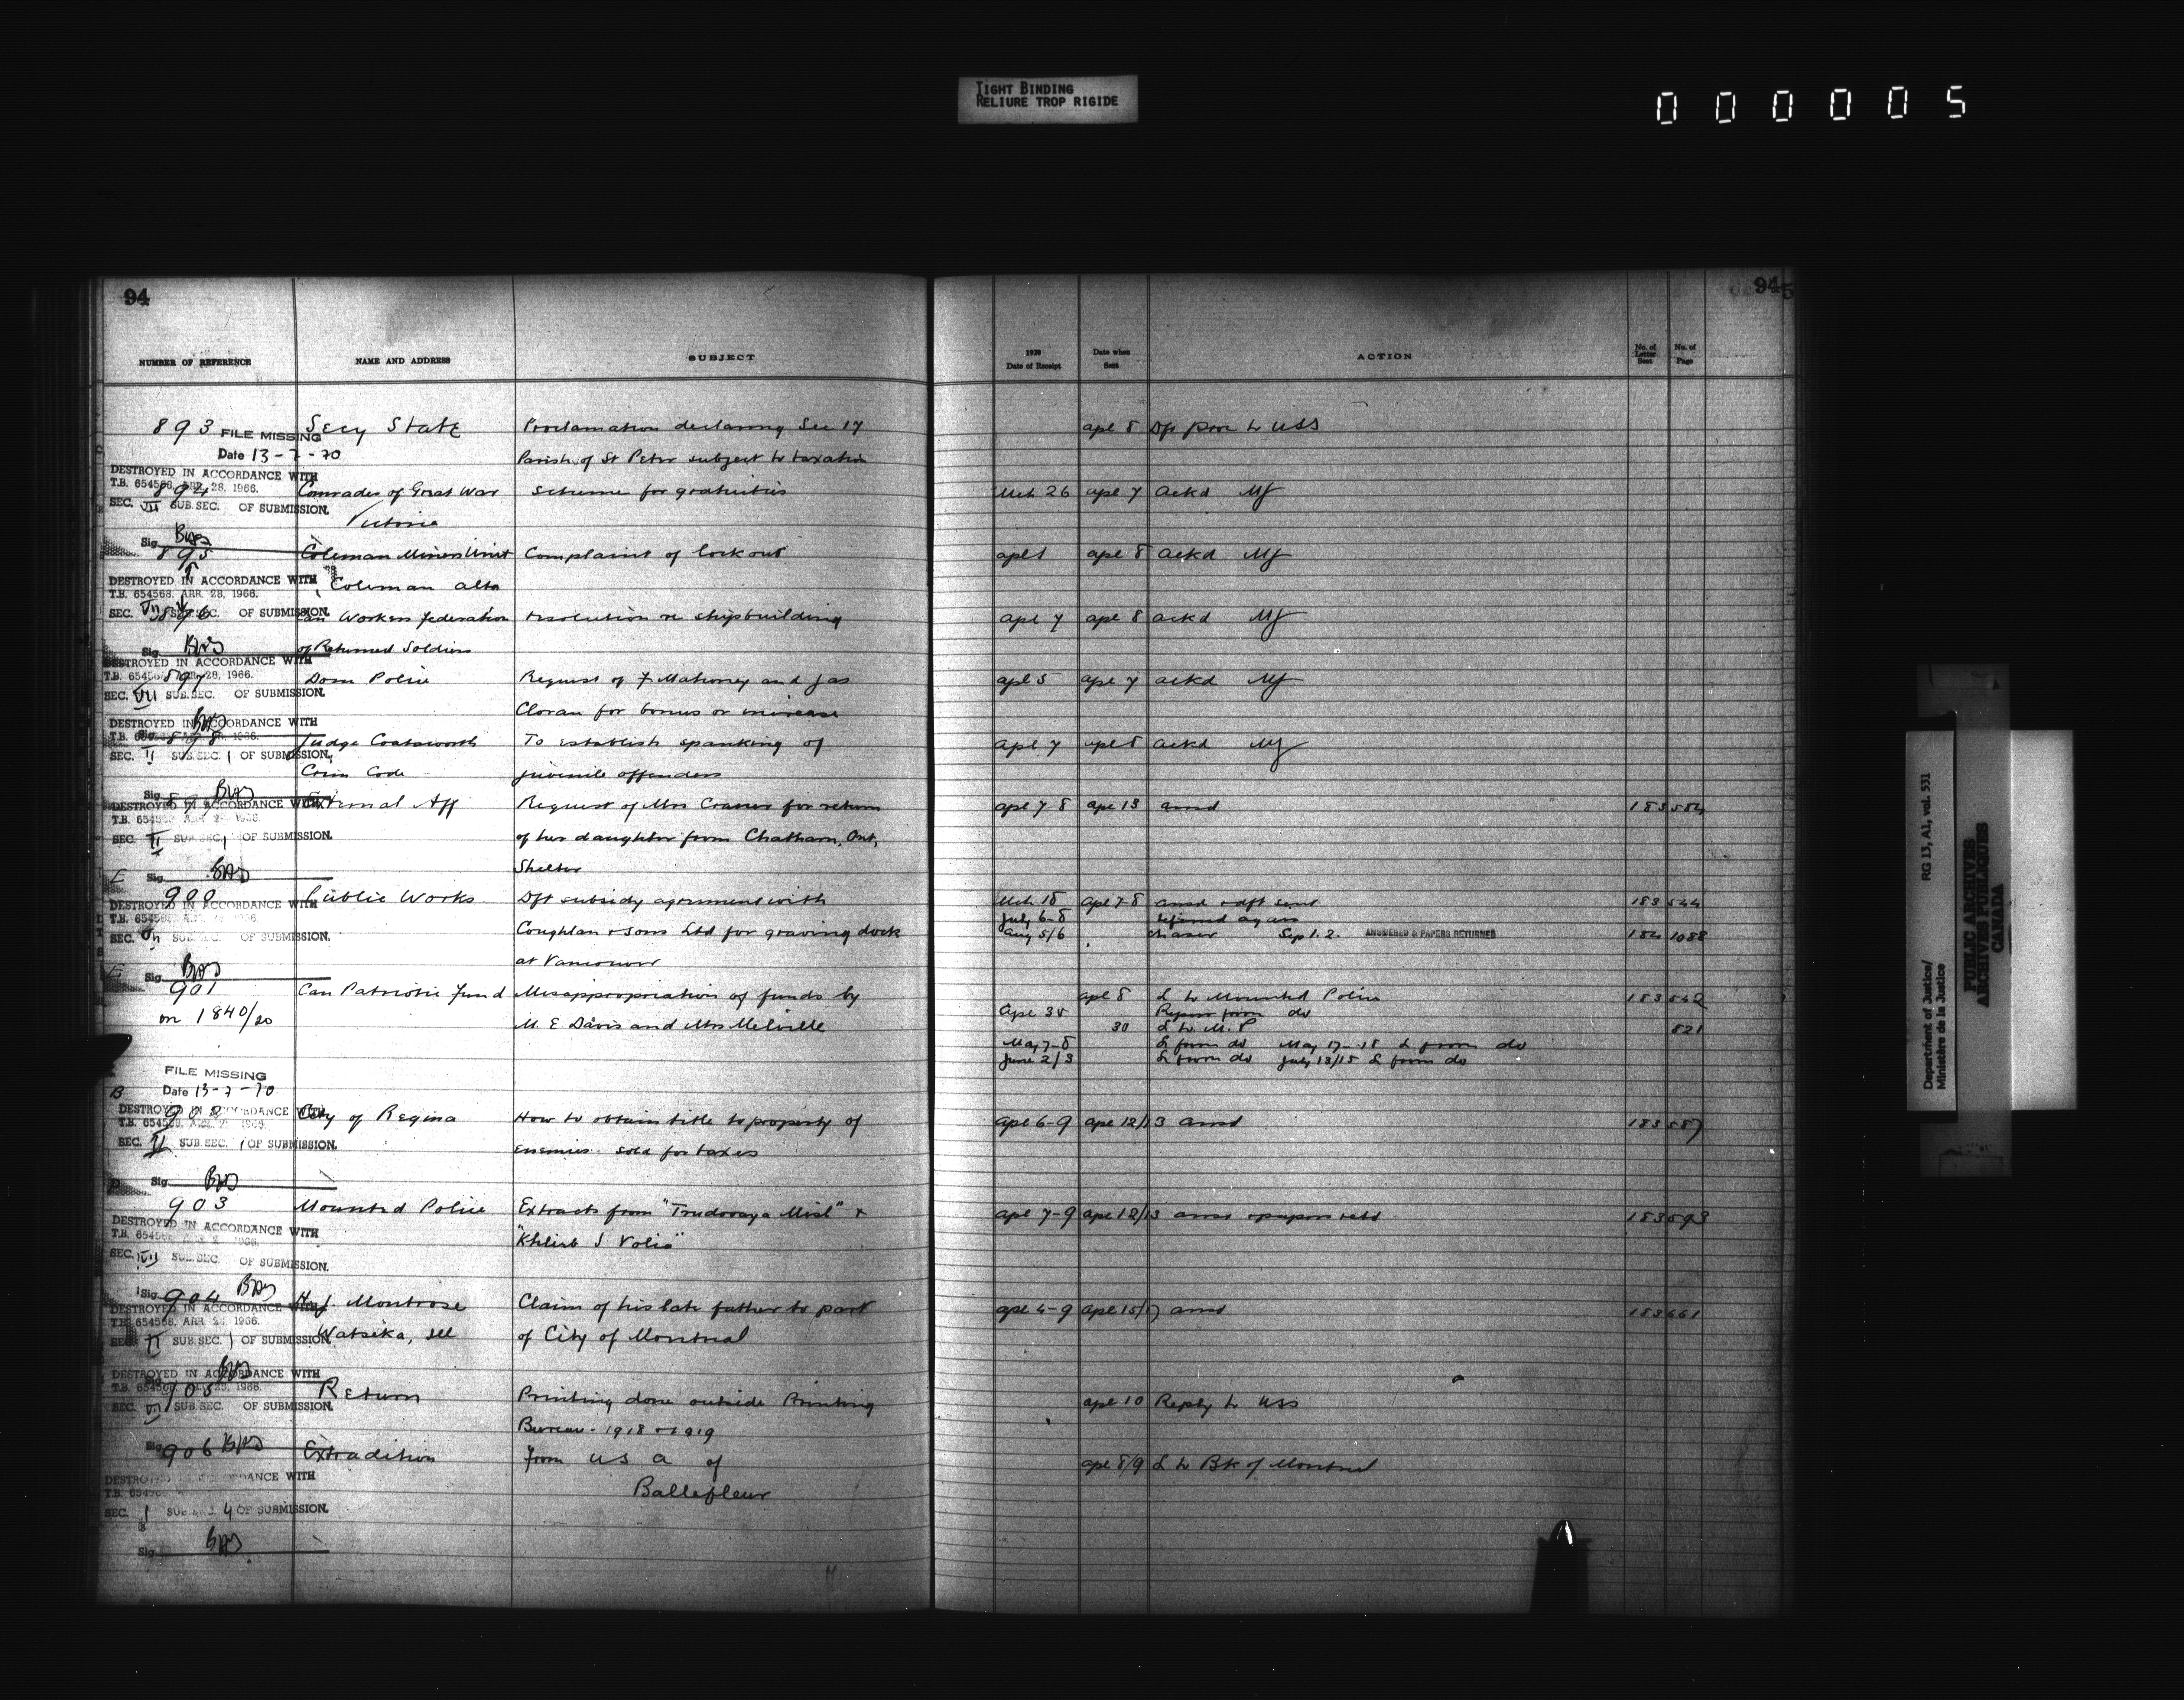 TIGHT BINDING
RELIURE TROP RIGIDE
000005
94
94
NUMBER OF REFERENCE NAME AND ADDRESS SUBJECT 1920 Date of Receipt Date when Sent ACTION No. of Letter Sent No. of Page
893 Secy State Proclamation declaring Sec 17 apl 8 Dft proc to USS
FILE MISSING
Date 13-7-70 Parish of St Peter subject to taxation
DESTROYED IN ACCORDANCE WITH
T.B. 654568, APR. 28, 1966.
894 Comrades of Great War scheme for gratuities Mch 26 apl 7 ackd MJ
SEC. VII SUB.SEC. OF SUBMISSION.
Victoria
Sig.
895 Coleman Miners Union Complaint of lock out apl 1 apl 8 ackd MJ
DESTROYED IN ACCORDANCE WITH
Coleman alta
T.B. 654568, APR. 28, 1966.
SEC. VII SUB.SEC. OF SUBMISSION.
896 Can Workers federation resolution re shipbuilding apl 7 apl 8 ackd MJ
Sig. of Returned Soldiers
DESTROYED IN ACCORDANCE WITH
T.B. 654568, APR. 28, 1966.
897 Dom Police Request of F Mahoney and Jas apl 5 apl 7 ackd MJ
SEC. VII SUB.SEC. OF SUBMISSION.
Cloran for bonus or increase
DESTROYED IN ACCORDANCE WITH
898 Judge Coatsworth To establish spanking of apl 7 apl 8 ackd MJ
SEC. II SUB.SEC. 1 OF SUBMISSION.
Crim Code juvenile offenders
Sig.
DESTROYED IN ACCORDANCE WITH
External Aff Request of Mrs for return apl 7-8 apl 13 ansd 183 584
SEC. II SUB.SEC. 1 OF SUBMISSION.
of her daughter from Chatham, Ont,
Sig. Shelter
900 Public Works Dft subsidy agreement with Mch 18 apl 7-8 ansd & dft sent 183 544
DESTROYED IN ACCORDANCE WITH
July 6-8 again
SEC. SUB.SEC. OF SUBMISSION. Coughlan & Sons Ltd for graving dock aug 5/6 chaser Sep 1.2. ANSWERED & PAPERS RETURNED 184 1088
at Vancouver
Sig.
901 Can Patriotic Fund Misappropriation of funds by apl 8 L to Mounted Police 183 542
on 1840/20 M. E Davis and Mrs Melville Apl 30 Report from do
30 L to M. P 821
May 7-8 L from do May 17-18 L from do
June 2/3 L from do July 13/15 L from do
FILE MISSING
Date 13-7-70
DESTROYED IN ACCORDANCE WITH
902 City of Regina How to obtain title to property of apl 6-9 apl 12/13 ansd 183 587
SEC. II SUB.SEC. 1 OF SUBMISSION. enemies sold for taxes
Sig.
903 Mounted Police Extracts from "Trudovaya Misl" & apl 7-9 apl 12/13 ansd & papers retd 183 593
DESTROYED IN ACCORDANCE WITH
"Khlieb I Volia"
SEC. VII SUB.SEC. OF SUBMISSION.
Sig.
904 H. J. Montrose Claim of his late father to part apl 4-9 apl 15/17 ansd 183 661
DESTROYED IN ACCORDANCE WITH
T.B. 654568, APR. 28, 1966.
SEC. II SUB.SEC. 1 OF SUBMISSION. Watseka, Ill of City of Montreal
DESTROYED IN ACCORDANCE WITH
T.B. 654568, APR. 28, 1966.
905 Return Printing done outside Printing apl 10 Reply to USS
SEC. VII SUB.SEC. OF SUBMISSION.
Bureau - 1918 & 1919
Sig.
906 Extradition from U S A of apl 8/9 L to Bk of Montreal
DESTROYED IN ACCORDANCE WITH
Ballefleur
SEC. 1 SUB.SEC. 4 OF SUBMISSION.
Sig.
Department of Justice/ RG 13, A1, vol. 531
Ministère de la Justice
PUBLIC ARCHIVES
ARCHIVES PUBLIQUES
CANADA